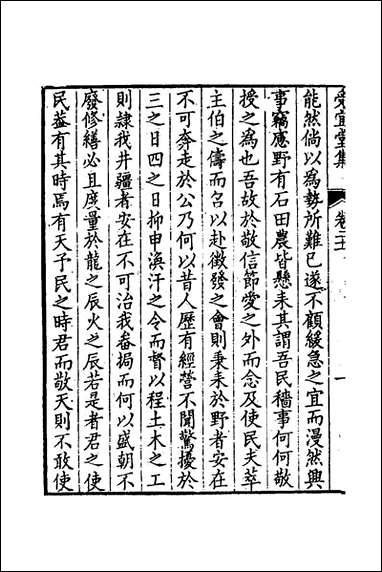 受宜堂集 卷二十 一
能然倘以為勢所難已遂不顧緩急之宜而漫然興
事竊應野有石田農皆懸耒其謂吾民穡事何何敬
授之為也吾故於敬信節愛之外而念及使民夫萃
主伯之儔而名以赴徵發之會則秉耒於野者安在
不可奔走於公乃何以昔人歷有經營不聞驚擾於
三之日四之日抑申渙汗之令而督以程土木之工
則隸我井疆者安在不可治我畚挶而何以盛朝不
廢修繕必且度量於龍之辰火之辰若是者君之使
民蓋有其時焉有天子民之時君而敬天則不敢使